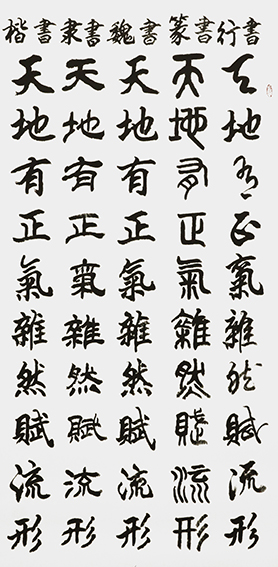 楷書 隶書 魏書 篆書 行書
天 天 天 天 天
地 地 地 地 地
有 有 有 有 有
正 正 正 正 正
氣 氣 氣 氣 氣
雜 雜 雜 雜 雜
然 然 然 然 然
賦 賦 賦 賦 賦
流 流 流 流 流
形 形 形 形 形